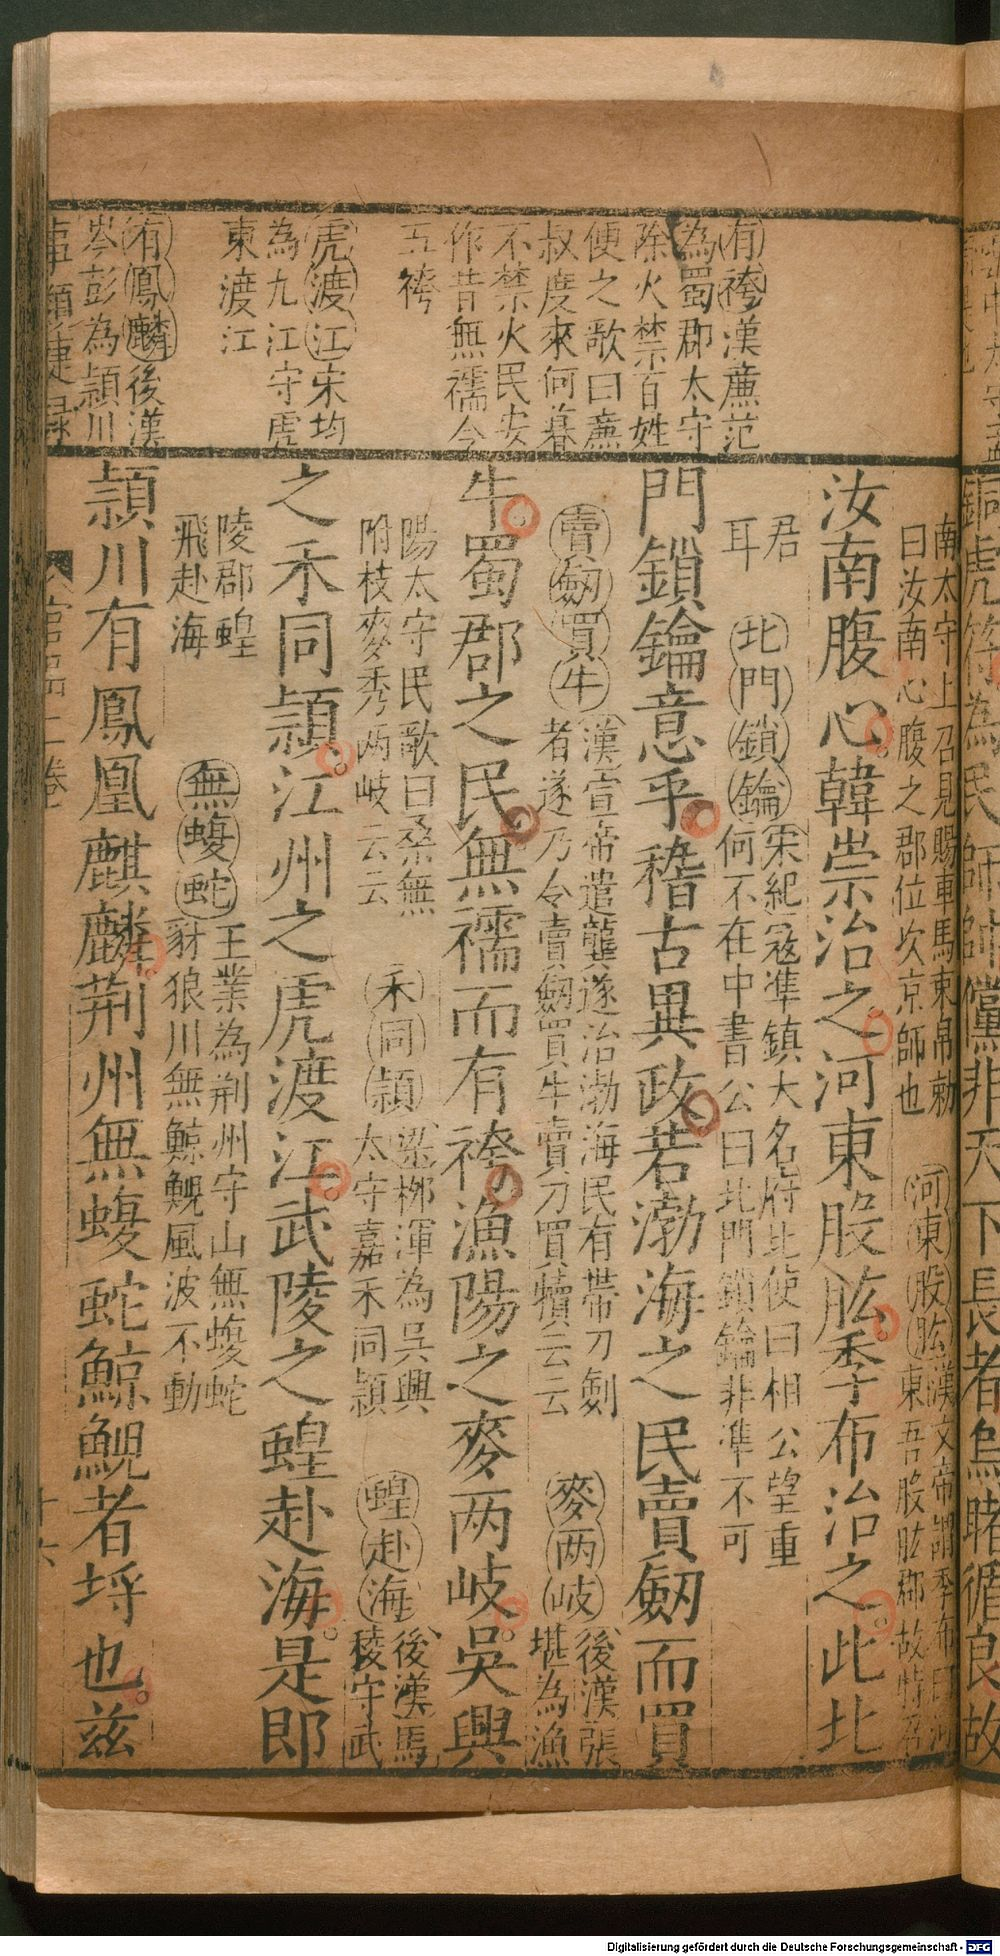 有袴漢廉范
為蜀郡太守
除火禁百姓
便之歌曰廉
叔度來何暮
不禁火民安
作昔無襦今
五袴
虎渡江宋均
為九江守虎
東渡江
有鳳麟後漢
岑彭為頴川
事類捷録
銅虎符為民師帥儻非天下長者烏睹循良故
南太守上召見賜車馬東帛勅
曰汝南心腹之郡位次京師也
河東股肱漢文帝謂季布曰河
東吾股肱郡故特召
汝南腹心韓崇治之河東股肱季布治之此北
君
耳
北門鎖鑰宋紀寇準鎮大名府北使曰相公望重
何不在中書公曰北門鎖鑰非準不可
門鎖鑰意乎稽古異政若渤海之民賣劒而買
賣劒買牛漢宣帝遣龔遂治渤海民有帶刀劍
者遂乃令賣劒買牛賣刀買犢云云
麥两岐後漢張
堪為漁
牛蜀郡之民無襦而有袴漁陽之麥两岐吳興
陽太守民歌曰桑無
附枝麥秀两岐云云
禾同頴梁栁渾為吳興
太守嘉禾同頴
蝗赴海後漢馬
稜守武
之禾同頴江州之虎渡江武陵之蝗赴海是郎
陵郡蝗
飛赴海
無蝮蛇王業為荆州守山無蝮蛇
豺狼川無鯨鯢風波不動
頴川有鳳凰麒麟荆州無蝮蛇鯨鯢者埒也兹
官品二卷
十六
Digitalisierung gefördert durch die Deutsche Forschungsgemeinschaft - DFG